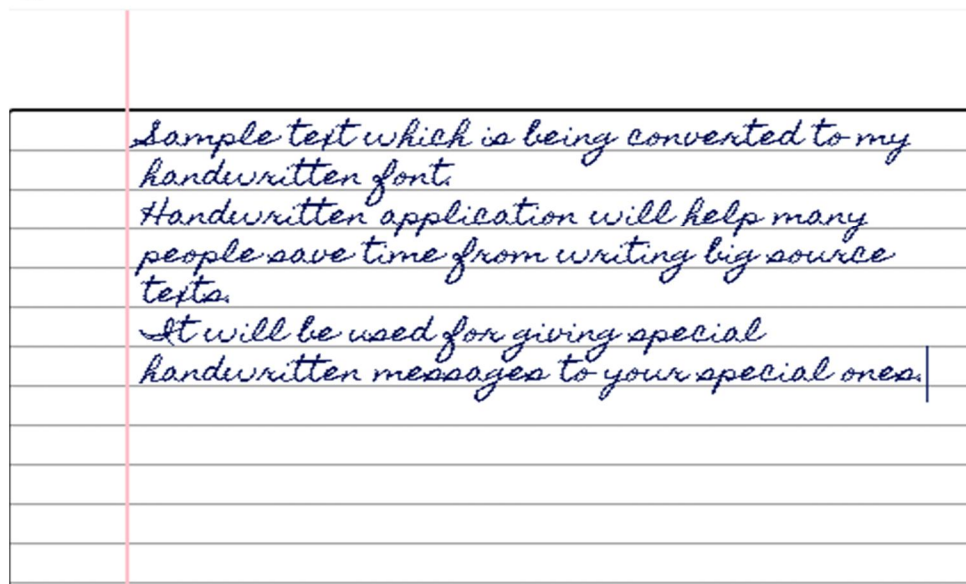 Sample text which is being converted to my
handwritten font.
Handwritten application will help many
people save time from writing big source
texts.
It will be used for giving special
handwritten messages to your special ones.